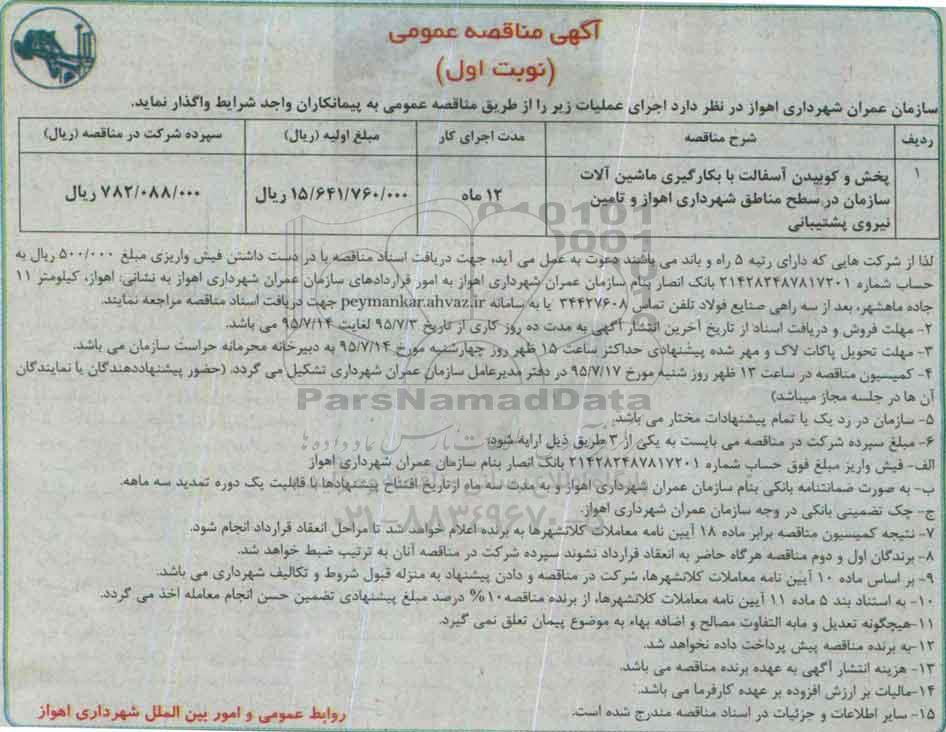 آگهی مناقصه عمومی
(نوبت اول)
سازمان عمران شهرداری اهواز در نظر دارد اجرای عملیات زیر را از طریق مناقصه عمومی به پیمانکاران واجد شرایط واگذار نماید.
ردیف شرح مناقصه مدت اجرای کار مبلغ اولیه (ریال) سپرده شرکت در مناقصه (ریال)
۱ پخش و کوبیدن آسفالت با بکارگیری ماشین آلات
سازمان در سطح مناطق شهرداری اهواز و تامین
نیروی پشتیبانی
۱۲ ماه ۱۵/۶۴۱/۷۶۰/۰۰۰ ریال ۷۸۲/۰۸۸/۰۰۰ ریال
لذا از شرکت هایی که دارای رتبه ۵ راه و باند می باشند دعوت به عمل می آید، جهت دریافت اسناد مناقصه با در دست داشتن فیش واریزی مبلغ ۵۰۰/۰۰۰ ریال به
حساب شماره ۲۱۴۲۸۲۴۸۷۸۱۷۲۰۱ بانک انصار بنام سازمان عمران شهرداری اهواز به امور قراردادهای سازمان عمران شهرداری اهواز به نشانی: اهواز، کیلومتر ۱۱
جاده ماهشهر، بعد از سه راهی صنایع فولاد تلفن تماس ۳۴۴۲۷۶۰۸ یا به سامانه peymankar.ahvaz.ir جهت دریافت اسناد مناقصه مراجعه نمایند.
۲- مهلت فروش و دریافت اسناد از تاریخ آخرین انتشار آگهی به مدت ده روز کاری از تاریخ ۹۵/۷/۳ لغایت ۹۵/۷/۱۴ می باشد.
۳- مهلت تحویل پاکات لاک و مهر شده پیشنهادی حداکثر ساعت ۱۵ ظهر روز چهارشنبه مورخ ۹۵/۷/۱۴ به دبیرخانه محرمانه حراست سازمان می باشد.
۴- کمیسیون مناقصه در ساعت ۱۳ ظهر روز شنبه مورخ ۹۵/۷/۱۷ در دفتر مدیرعامل سازمان عمران شهرداری تشکیل می گردد. (حضور پیشنهاددهندگان یا نمایندگان
آن ها در جلسه مجاز میباشد)
ParsNamadData
۵- سازمان در رد یک یا تمام پیشنهادات مختار می باشد.
۶- مبلغ سپرده شرکت در مناقصه می بایست به یکی از ۳ طریق ذیل ارایه شود:
الف- فیش واریز مبلغ فوق حساب شماره ۲۱۴۲۸۲۴۸۷۸۱۷۲۰۱ بانک انصار بنام سازمان عمران شهرداری اهواز
ب- به صورت ضمانتنامه بانکی بنام سازمان عمران شهرداری اهواز و به مدت سه ماه ازتاریخ افتتاح پیشنهادها با قابلیت یک دوره تمدید سه ماهه.
ج- چک تضمینی بانکی در وجه سازمان عمران شهرداری اهواز.
۷- نتیجه کمیسیون مناقصه برابر ماده ۱۸ آیین نامه معاملات کلانشهرها به برنده اعلام خواهد شد تا مراحل انعقاد قرارداد انجام شود.
۸- برندگان اول و دوم مناقصه هرگاه حاضر به انعقاد قرارداد نشوند سپرده شرکت در مناقصه آنان به ترتیب ضبط خواهد شد.
۹- بر اساس ماده ۱۰ آیین نامه معاملات کلانشهرها، شرکت در مناقصه و دادن پیشنهاد به منزله قبول شروط و تکالیف شهرداری می باشد.
۱۰- به استناد بند ۵ ماده ۱۱ آیین نامه معاملات کلانشهرها، از برنده مناقصه۱۰% درصد مبلغ پیشنهادی تضمین حسن انجام معامله اخذ می گردد.
۱۱-هیچگونه تعدیل و مابه التفاوت مصالح و اضافه بهاء به موضوع پیمان تعلق نمی گیرد.
۱۲-به برنده مناقصه پیش پرداخت داده نخواهد شد.
۱۳- هزینه انتشار آگهی به عهده برنده مناقصه می باشد.
۱۴-مالیات بر ارزش افزوده بر عهده کارفرما می باشد.
۱۵- سایر اطلاعات و جزئیات در اسناد مناقصه مندرج شده است.
روابط عمومی و امور بین الملل شهرداری اهواز